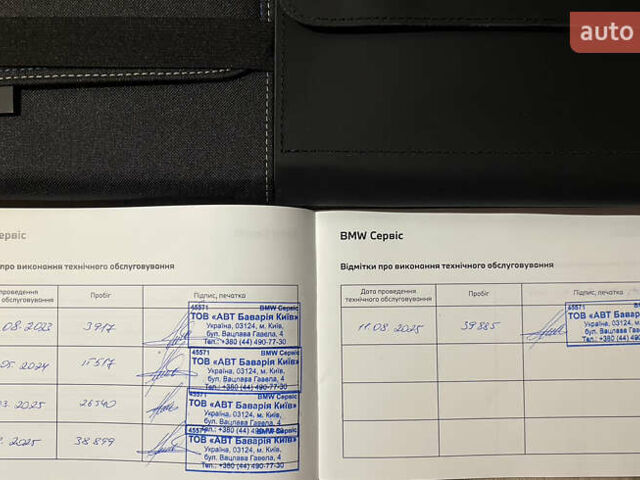 auto
ервіс
про виконання технічного обслуговування
проведення
обслуговування
Пробіг
Підпис, печатка
.08.2023
3917
45571 BMW Сервіс
ТОВ «АВТ Баварія Київ»
Україна, 03124, м. Київ,
бул. Вацлава Гавела, 4
Тел.: +380 (44) 490-77-30
05.2024
15517
45571 BMW Сервіс
ТОВ «АВТ Баварія Київ»
Україна, 03124, м. Київ,
бул. Вацлава Гавела, 4
Тел.: +380 (44) 490-77-30
03.2025
26540
BMW Сервіс
ТОВ «АВТ Баварія Київ»
Україна, 03124, м. Київ,
бул. Вацлава Гавела, 4
+380 (44) 490-77-30
2025
38899
45571 BMW Сервіс
ТОВ «АВТ Баварія Київ»
Україна, 03124, м. Київ,
бул. Вацлава Гавела, 4
Тел.: +380 (44) 490-77-30
BMW Сервіс
Відмітки про виконання технічного обслуговування
Дата проведення
технічного обслуговування
Пробіг
Підпис, печатка
11.08.2025
39885
45571
ТОВ «АВТ Бавар
Україна, 03124,
бул. Вацлава Г
Тел.: +380 (44)